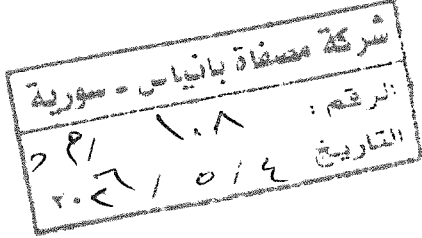 شركة مصفاة بانياس - سورية
الرقم : ١٠٨ /
التاريخ ٤ / ٥ / ٢٠٢٦